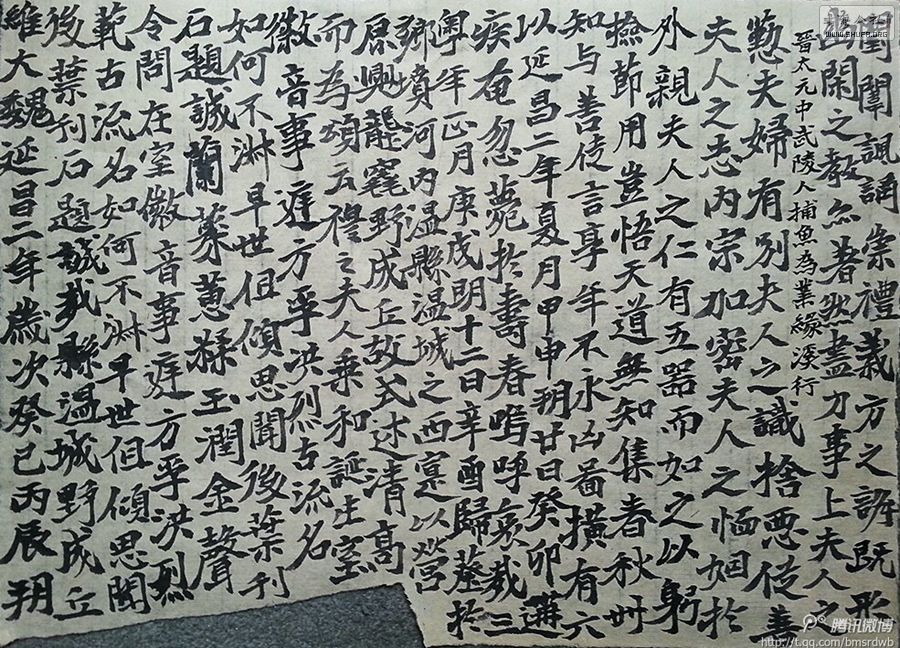 閨闈諷誦崇禮義方之訓既形
幽閑之教亦著然盡力事上夫人之
晉太元中武陵人捕魚為業緣溪行
懃夫婦有別夫人之識捨惡從善
夫人之志内宗加密夫人之恤姻於
外親夫人之仁有五器而如之以躬
撿節用豈悟天道無知集春秋卅
知与善徒言享年不永凶啚橫有六
以延昌二年夏月甲申朔廿日癸卯遘
疾奄忽薨於壽春嗚呼哀哉三
粵年正月庚戊明十二日辛酉歸葬於
鄉墳河内温縣温城之西寔以營
原興窀野成丘故式述清高
而為頌云穆之夫人乗和誕生寔
徽音事遲方乎洪烈古流名
如何不淋早世徂傾思聞後葉刊
石題誠蘭蓁蕙糅玉潤金聲
令問在室徽音事遲方乎洪烈
範古流名如何不淋早世徂傾思聞
後葉刊石題誠哉縣温城野成丘
維大魏延昌二年歲次癸巳丙辰朔
WWW.SHUFA.ORG
腾讯微博
http://t.qq.com/bmsrdwb